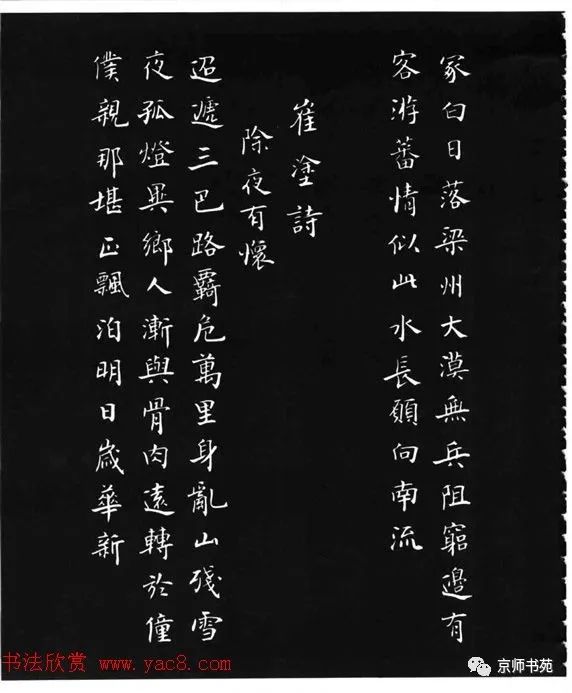 冢白日落梁州大漠無兵阻窮邊有
客游蕃情似此水長願向南流
崔塗詩
除夜有懷
迢遞三巴路羈危萬里身亂山殘雪
夜孤燈異鄉人漸與骨肉遠轉於僮
僕親那堪正飄泊明日歲華新
书法欣赏 www.yac8.com
京师书苑